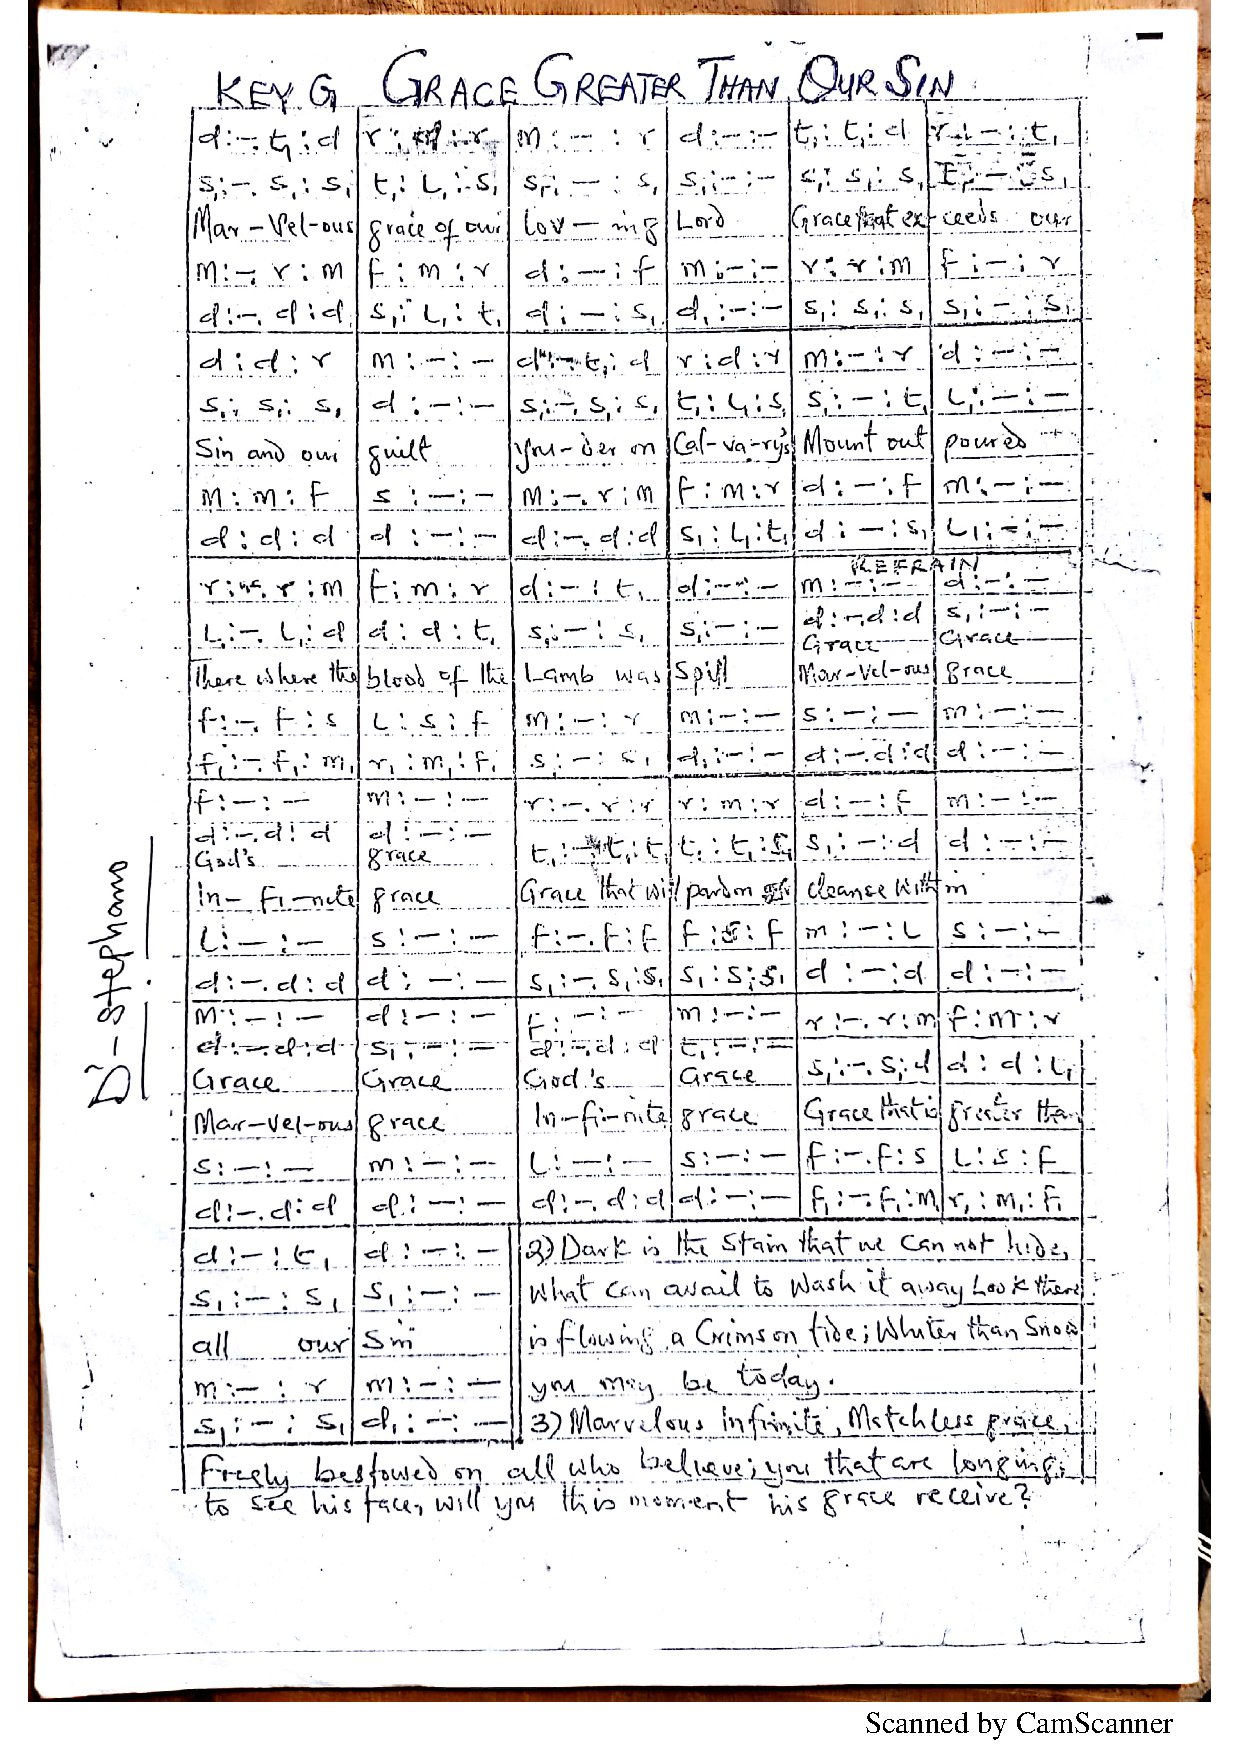 KEY G GRACE GREATER THAN OUR SIN
d:-.t₁:d | r:d:r | m:-:r | d:-:- | t₁:t₁:d | r:-:t₁
s₁:-.s₁:s₁ | t₁:l₁:s₁ | s₁:-:s₁ | s₁:-:- | s₁:s₁:s₁ | :-:s₁
Mar-Vel-ous | grace of our | Lov-ing | Lord | Grace that ex- | ceeds our
m:-.r:m | f:m:r | d:-:f | m:-:- | r:r:m | f:-:r
d:-.d:d | s₁:L₁:t₁ | d:-:s₁ | d₁:-:- | s₁:s₁:s₁ | s₁:-:s₁
d:d:r | m:-:- | d:-.t₁:d | r:d:r | m:-:r | d:-:-
s₁:s₁:s₁ | d:-:- | s₁:-.s₁:s₁ | t₁:L₁:s₁ | s₁:-:t₁ | L₁:-:-
Sin and our | guilt | You-der on | Cal-va-ry's | Mount out | poured
m:m:f | s:-:- | m:-.r:m | f:m:r | d:-:f | m:-:-
d:d:d | d:-:- | d:-.d:d | s₁:L₁:t₁ | d:-:s₁ | L₁:-:-
REFRAIN
r:-.r:m | f:m:r | d:-:t₁ | d:-:- | m:-:- | d:-:-
L₁:-.L₁:d | d:d:t₁ | s₁:-:s₁ | s₁:-:- | d:-.d:d | s₁:-:-
Grace | Grace
There where the | blood of the | Lamb was | Spill | Mar-Vel-ous | grace
f:-.f:s | L:s:f | m:-:r | m:-:- | s:-:- | m:-:-
f₁:-.f₁:m₁ | r₁:m₁:f₁ | s:-:s₁ | d₁:-:- | d:-.d:d | d:-:-
f:-:- | m:-:- | r:-.r:r | r:m:r | d:-:f | m:-:-
d:-.d:d | d:-:- | t₁:-.t₁:t₁ | t₁:t₁:s₁ | s₁:-:d | d:-:-
God's | grace
In-fi-nite | grace | Grace that will | pardon | cleanse with | in
L:-:- | s:-:- | f:-.f:f | f:s:f | m:-:L | s:-:-
d:-.d:d | d:-:- | s₁:-.s₁:s₁ | s₁:s₁:s₁ | d:-:d | d:-:-
m:-:- | d:-:- | f:-:- | m:-:- | r:-.r:m | f:m:r
d:-.d:d | s₁:-:- | d:-.d:d | t₁:-:- | s₁:-.s₁:d | d:d:L₁
Grace | Grace | God's | Grace
Mar-vel-ous | grace | In-fi-nite | grace | Grace that is | greater than
s:-:- | m:-:- | L:-:- | s:-:- | f:-.f:s | L:s:f
d:-.d:d | d:-:- | d:-.d:d | d:-:- | f₁:-.f₁:m₁ | r₁:m₁:f₁
d:-:t₁ | d:-:- | 2) Dark is the stain that we can not hide,
s₁:-:s₁ | s₁:-:- | What can avail to wash it away Look there
all our | Sin | is flowing a Crimson tide; Whiter than Snow
m:-:r | m:-:- | you may be today.
s₁:-:s₁ | d₁:-:- | 3) Marvelous infinite, Matchless grace,
Freely bestowed on all who believe; you that are longing
to see his face, will you this moment his grace receive?
D-stephano
Scanned by CamScanner